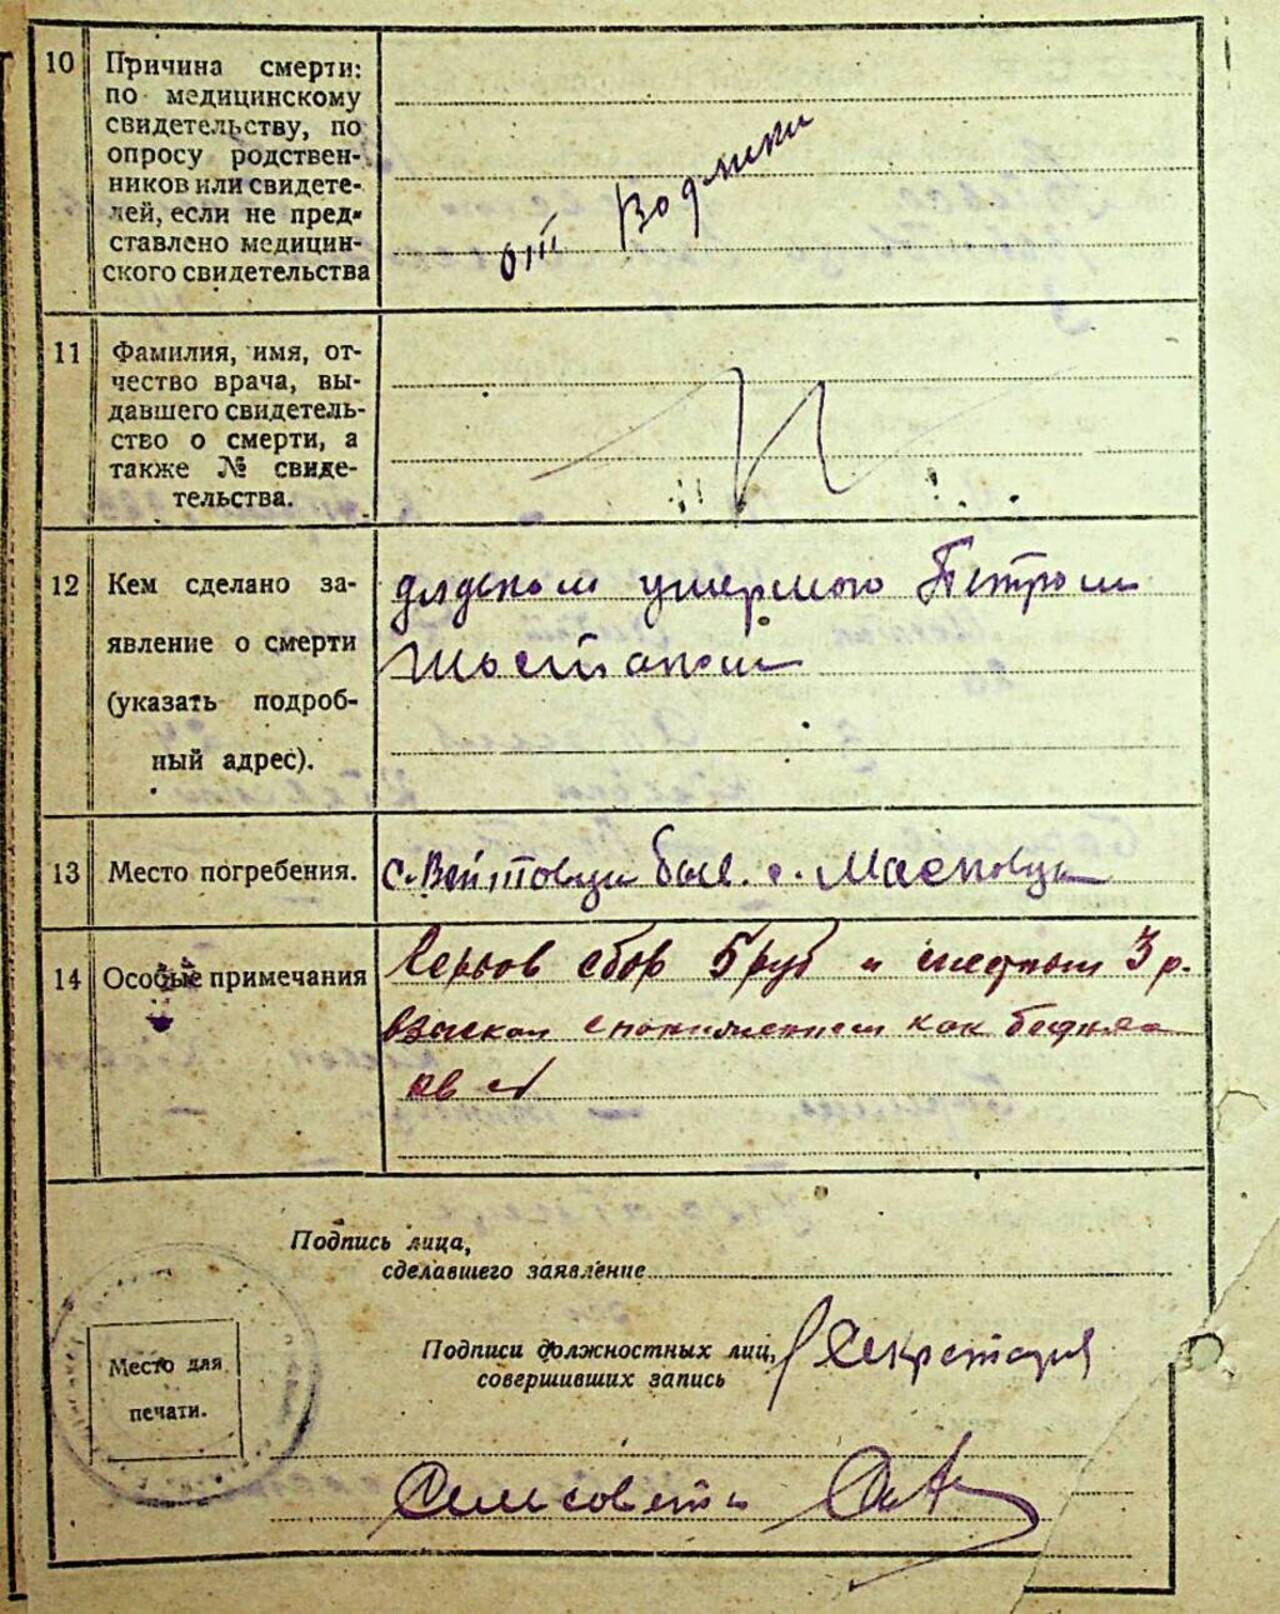 10 Причина смерти:
по медицинскому
свидетельству, по
опросу родствен-
ников или свидете-
лей, если не пред-
ставлено медицин-
ского свидетельства
от Водянки
11 Фамилия, имя, от-
чество врача, вы-
давшего свидетель-
ство о смерти, а
также № свиде-
тельства.
12 Кем сделано за-
явление о смерти
(указать подроб-
ный адрес).
дядьком умермого Петром
Шостаком
13 Место погребения.
с. Войтовци был. с.
14 Особые примечания
сбор 5 руб и 3 р.
как
Подпись лица,
сделавшего заявление
Подписи должностных лиц,
совершивших запись
Секретарь
Место для
печати.
Сельсовета